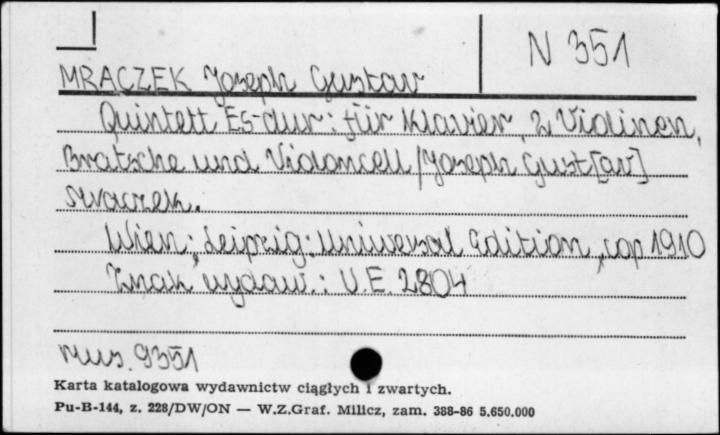 N 351
MRACZEK Joseph Gustav
Quintett Es-dur : für Klavier, 2 Violinen,
Bratsche und Violoncell / Joseph Gust[av]
Mraczek.
Wien ; Leipzig : Universal Edition, cop 1910
Znak wydaw. : U.E. 2804
Mus. 9351
Karta katalogowa wydawnictw ciągłych i zwartych.
Pu-B-144, z. 228/DW/ON — W.Z.Graf. Milicz, zam. 388-86 5.650.000